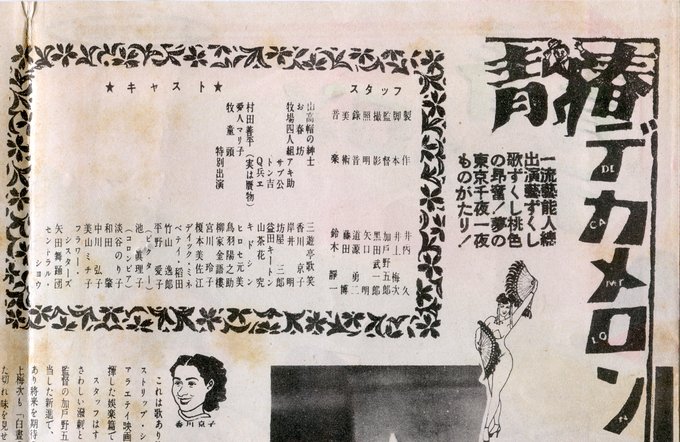 青春デカメロン
DE CA ME LO N
一流藝能人総
出演藝ずくし
歌ずくし桃色
の昂奮!夢の
東京千夜一夜
ものがたり!
スタッフ
製作 井内 久
脚本 井上梅次
監督 加戸野五郎
撮影 黒田武一郎
照明 矢口 明
録音 道源勇二
美術 藤田 博
音楽 鈴木靜一
★キャスト★
山高帽の紳士 三遊亭歌笑
お春坊 香川京子
牧場四人組 アキ助 岸井 明
サブ公 坊屋三郎
トン吉 益田キートン
Q兵エ 山茶花 究
村田善平(実は贋物) キドシン
愛人マリ子 ヒロセ元美
牧童頭 鳥羽陽之助
特別出演 柳家金語樓
宮川玲子
榎本美佐江
デイツク・ミネ
ベテイ稲田
竹山逸郎
平野愛子
(ビクター)
池眞理子
(コロンビア)
淡谷のり子
和田 肇
中川弘子
美山ミチ子
フラワーシスターズ
矢田舞踊団
セントラルショウ
香川京子
これは歌あり
ストリップ・シ
アラエテイ映画
揮した娯楽篇で
スタッフはす
さわしい溌剌と
監督の加戸野五
当した新進で、
あり将來を期待
上梅次も「白晝
た切れ味を見せ